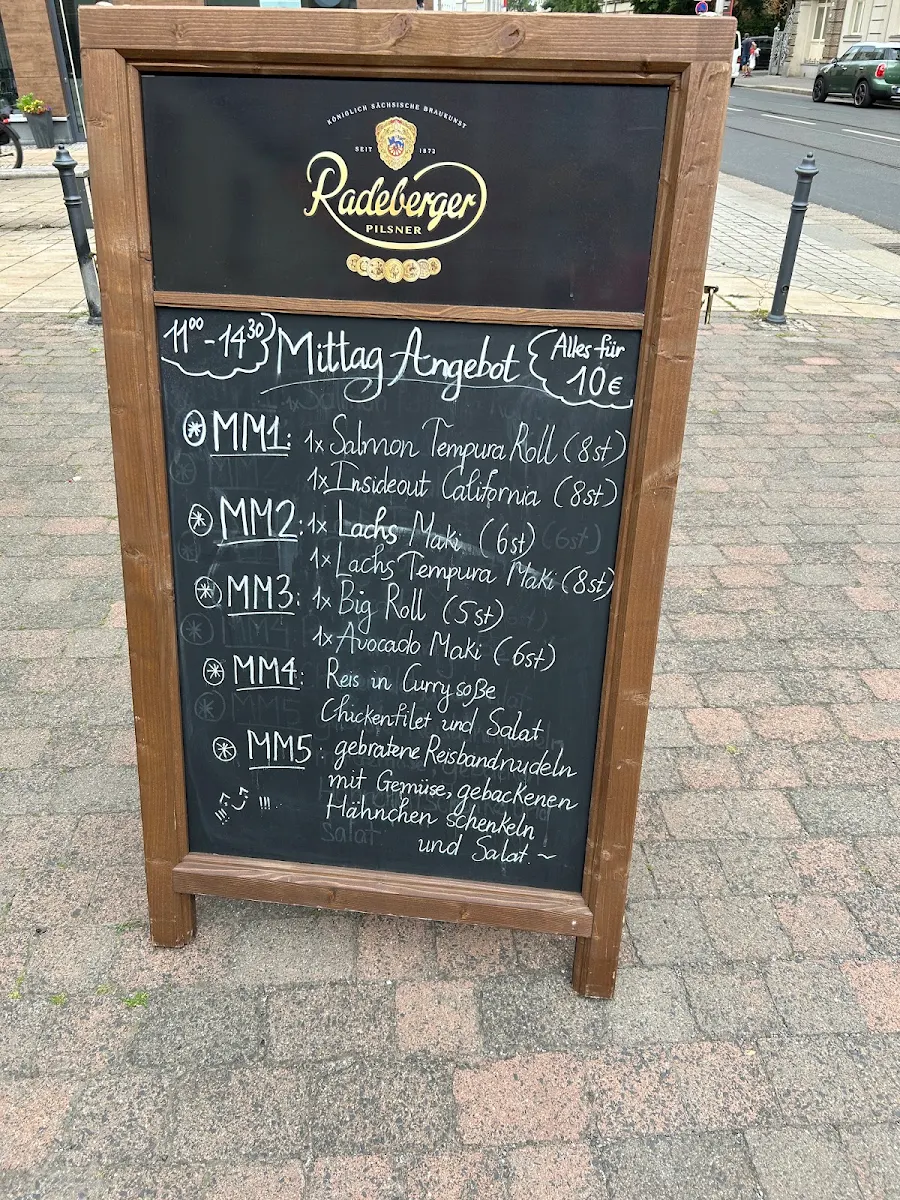 KÖNIGLICH SÄCHSISCHE BRAUKUNST
SEIT 1872
Radeberger
PILSNER
11⁰⁰ - 14³⁰
Mittag Angebot
Alles für
10€
MM1: 1x Salmon Tempura Roll (8st)
1x Insideout California (8st)
MM2: 1x Lachs Maki (6st) (6st)
1x Lachs Tempura Maki (8st)
MM3: 1x Big Roll (5st)
1x Avocado Maki (6st)
MM4: Reis in Curry soße
Chickenfilet und Salat
MM5: gebratene Reisbandnudeln
mit Gemüse, gebackenen
Hähnchen schenkeln
und Salat. ~
!!! !!!
Salat